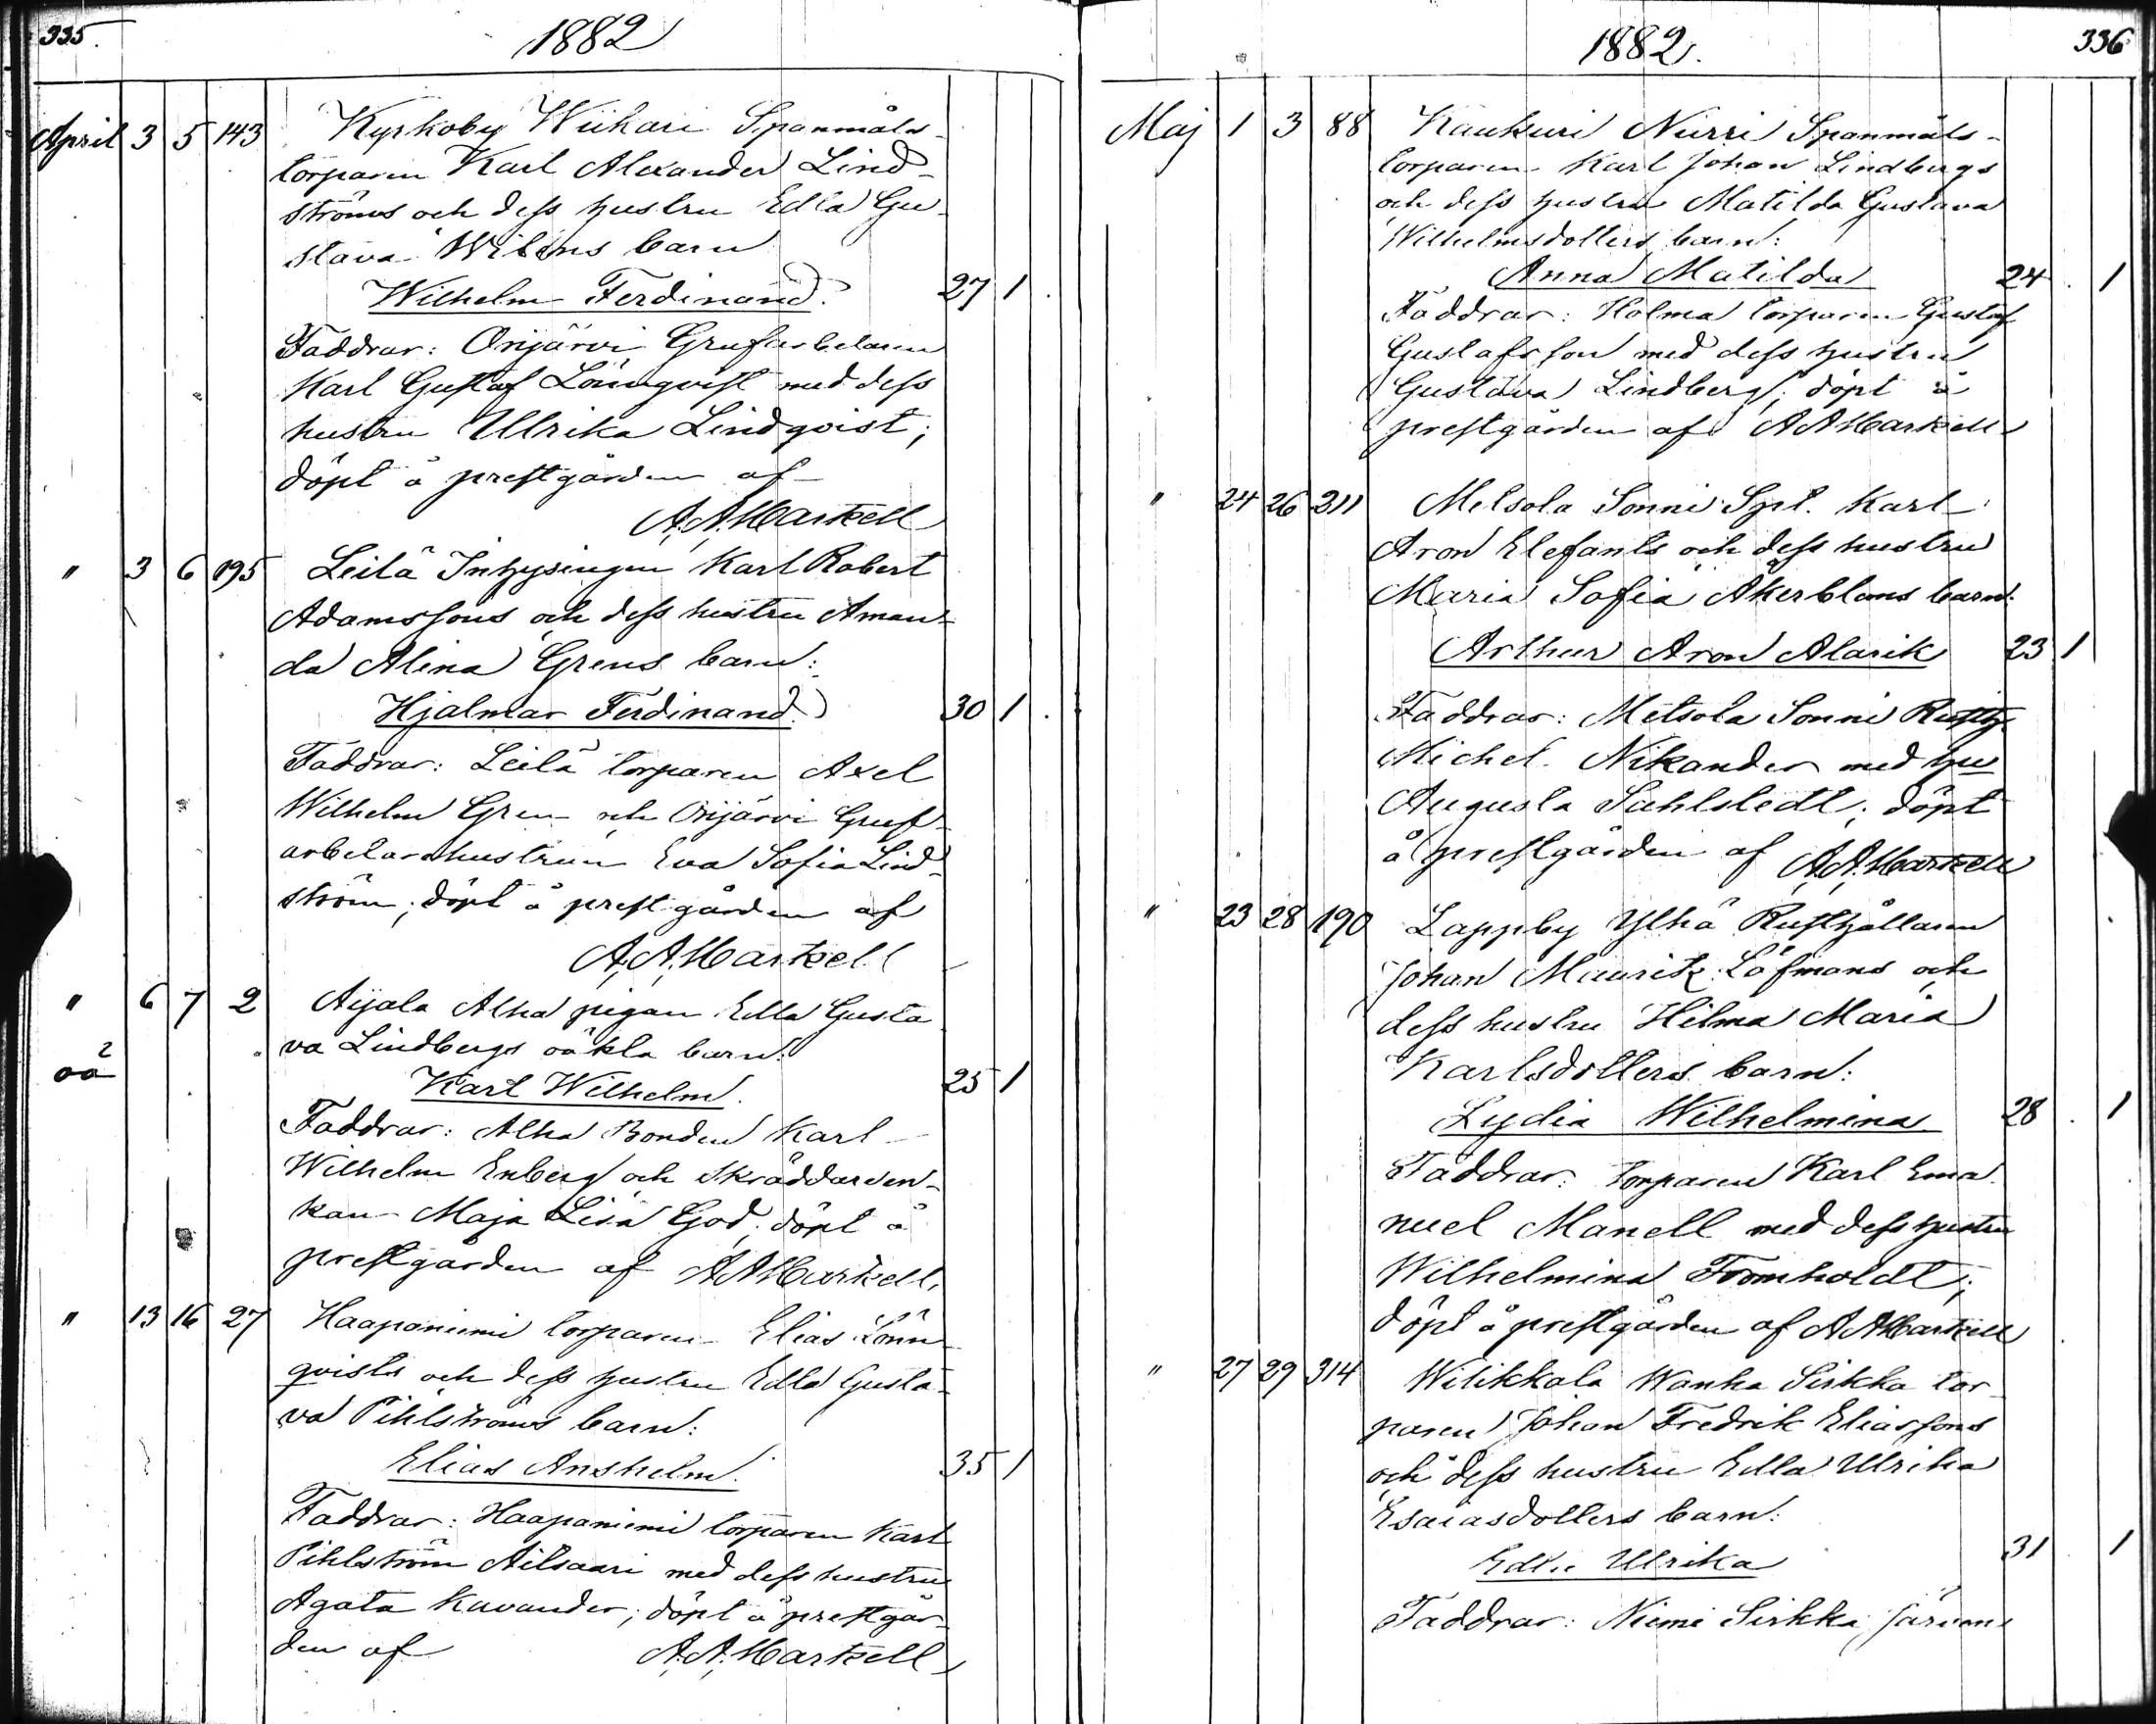 335.
1882
April 3 5 143 Kyrkoby Wiihari Spanmåls-
torparen Karl Alexander Lind-
ströms och dess hustru Edla Gu-
stava Wiléns barn
Wilhelm Ferdinand. 27 1
Faddrar: Orijärvi Grufarbetaren
Karl Gustaf Lönnqvist med dess
hustru Ullrika Lindqvist;
döpt å prestgården af
A.A. Markell
" 3 6 195 Leilä Inhysingen Karl Robert
Adamssons och dess hustru Aman-
da Alina Grens barn:
Hjalmar Ferdinand. 30 1
Faddrar: Leilä torparen Axel
Wilhelm Gren och Orijärvi Gruf-
arbetarehustrun Eva Sofia Lind-
ström; döpt å prestgården af
A.A. Markell
" 6 7 2 Aijala Alha pigan Edla Gusta
oä 2 va Lindbergs oäkta barn:
Karl Wilhelm. 25 1
Faddrar: Alha Bonden Karl
Wilhelm Enberg och Skräddareen-
kan Maja Lisa God; döpt å
prestgården af A A Markell.
" 13 16 27 Haapaniemi torparen Elias Lönn-
qvists och dess hustru Edla Gusta-
va Pihlströms barn:
Elias Anshelm. 35 1
Faddrar: Haapaniemi torparen Karl
Pihlström Aitsaari med dess hustru
Agata Kavander; döpt å prestgår-
den af A.A. Markell
336
1882.
Maj 1 3 88 Kaukuri Nurri Spanmåls-
torparen Karl Johan Lindbergs
och dess hustru Matilda Gustava
Wilhelmsdotters barn:
Anna Matilda 24 1
Faddrar: Holma torparen Gustaf
Gustafsson med dess hustru
Gustava Lindberg; döpt å
prestgården af A A Markell
" 24 26 211 Metsola Sonni Spt. Karl
Aron Elefants och dess hustru
Maria Sofia Åkerbloms barn:
Arthur Aron Alarik 23 1
Faddrar: Metsola Sonni Rusth.
Michel Nikander med hu
Augusta Sahlstedt; döpt
å prestgården af A.A. Markell
" 23 28 190 Lappby Ylhä Rusthållaren
Johan Maurits Löfmans och
dess hustru Hilma Maria
Karlsdotters barn:
Lydia Wilhelmina 28 1
Faddrar: torparen Karl Ema-
nuel Manell med dess hustru
Wilhelmina Fromholdt;
döpt å prestgården af A A Markell
" 27 29 314 Wilikkala Wanha Sirkka tor-
paren Johan Fredrik Eliassons
och dess hustru Edla Ulrika
Esaiasdotters barn:
Edla Ulrika 31 1
Faddrar: Niemi Sirkka